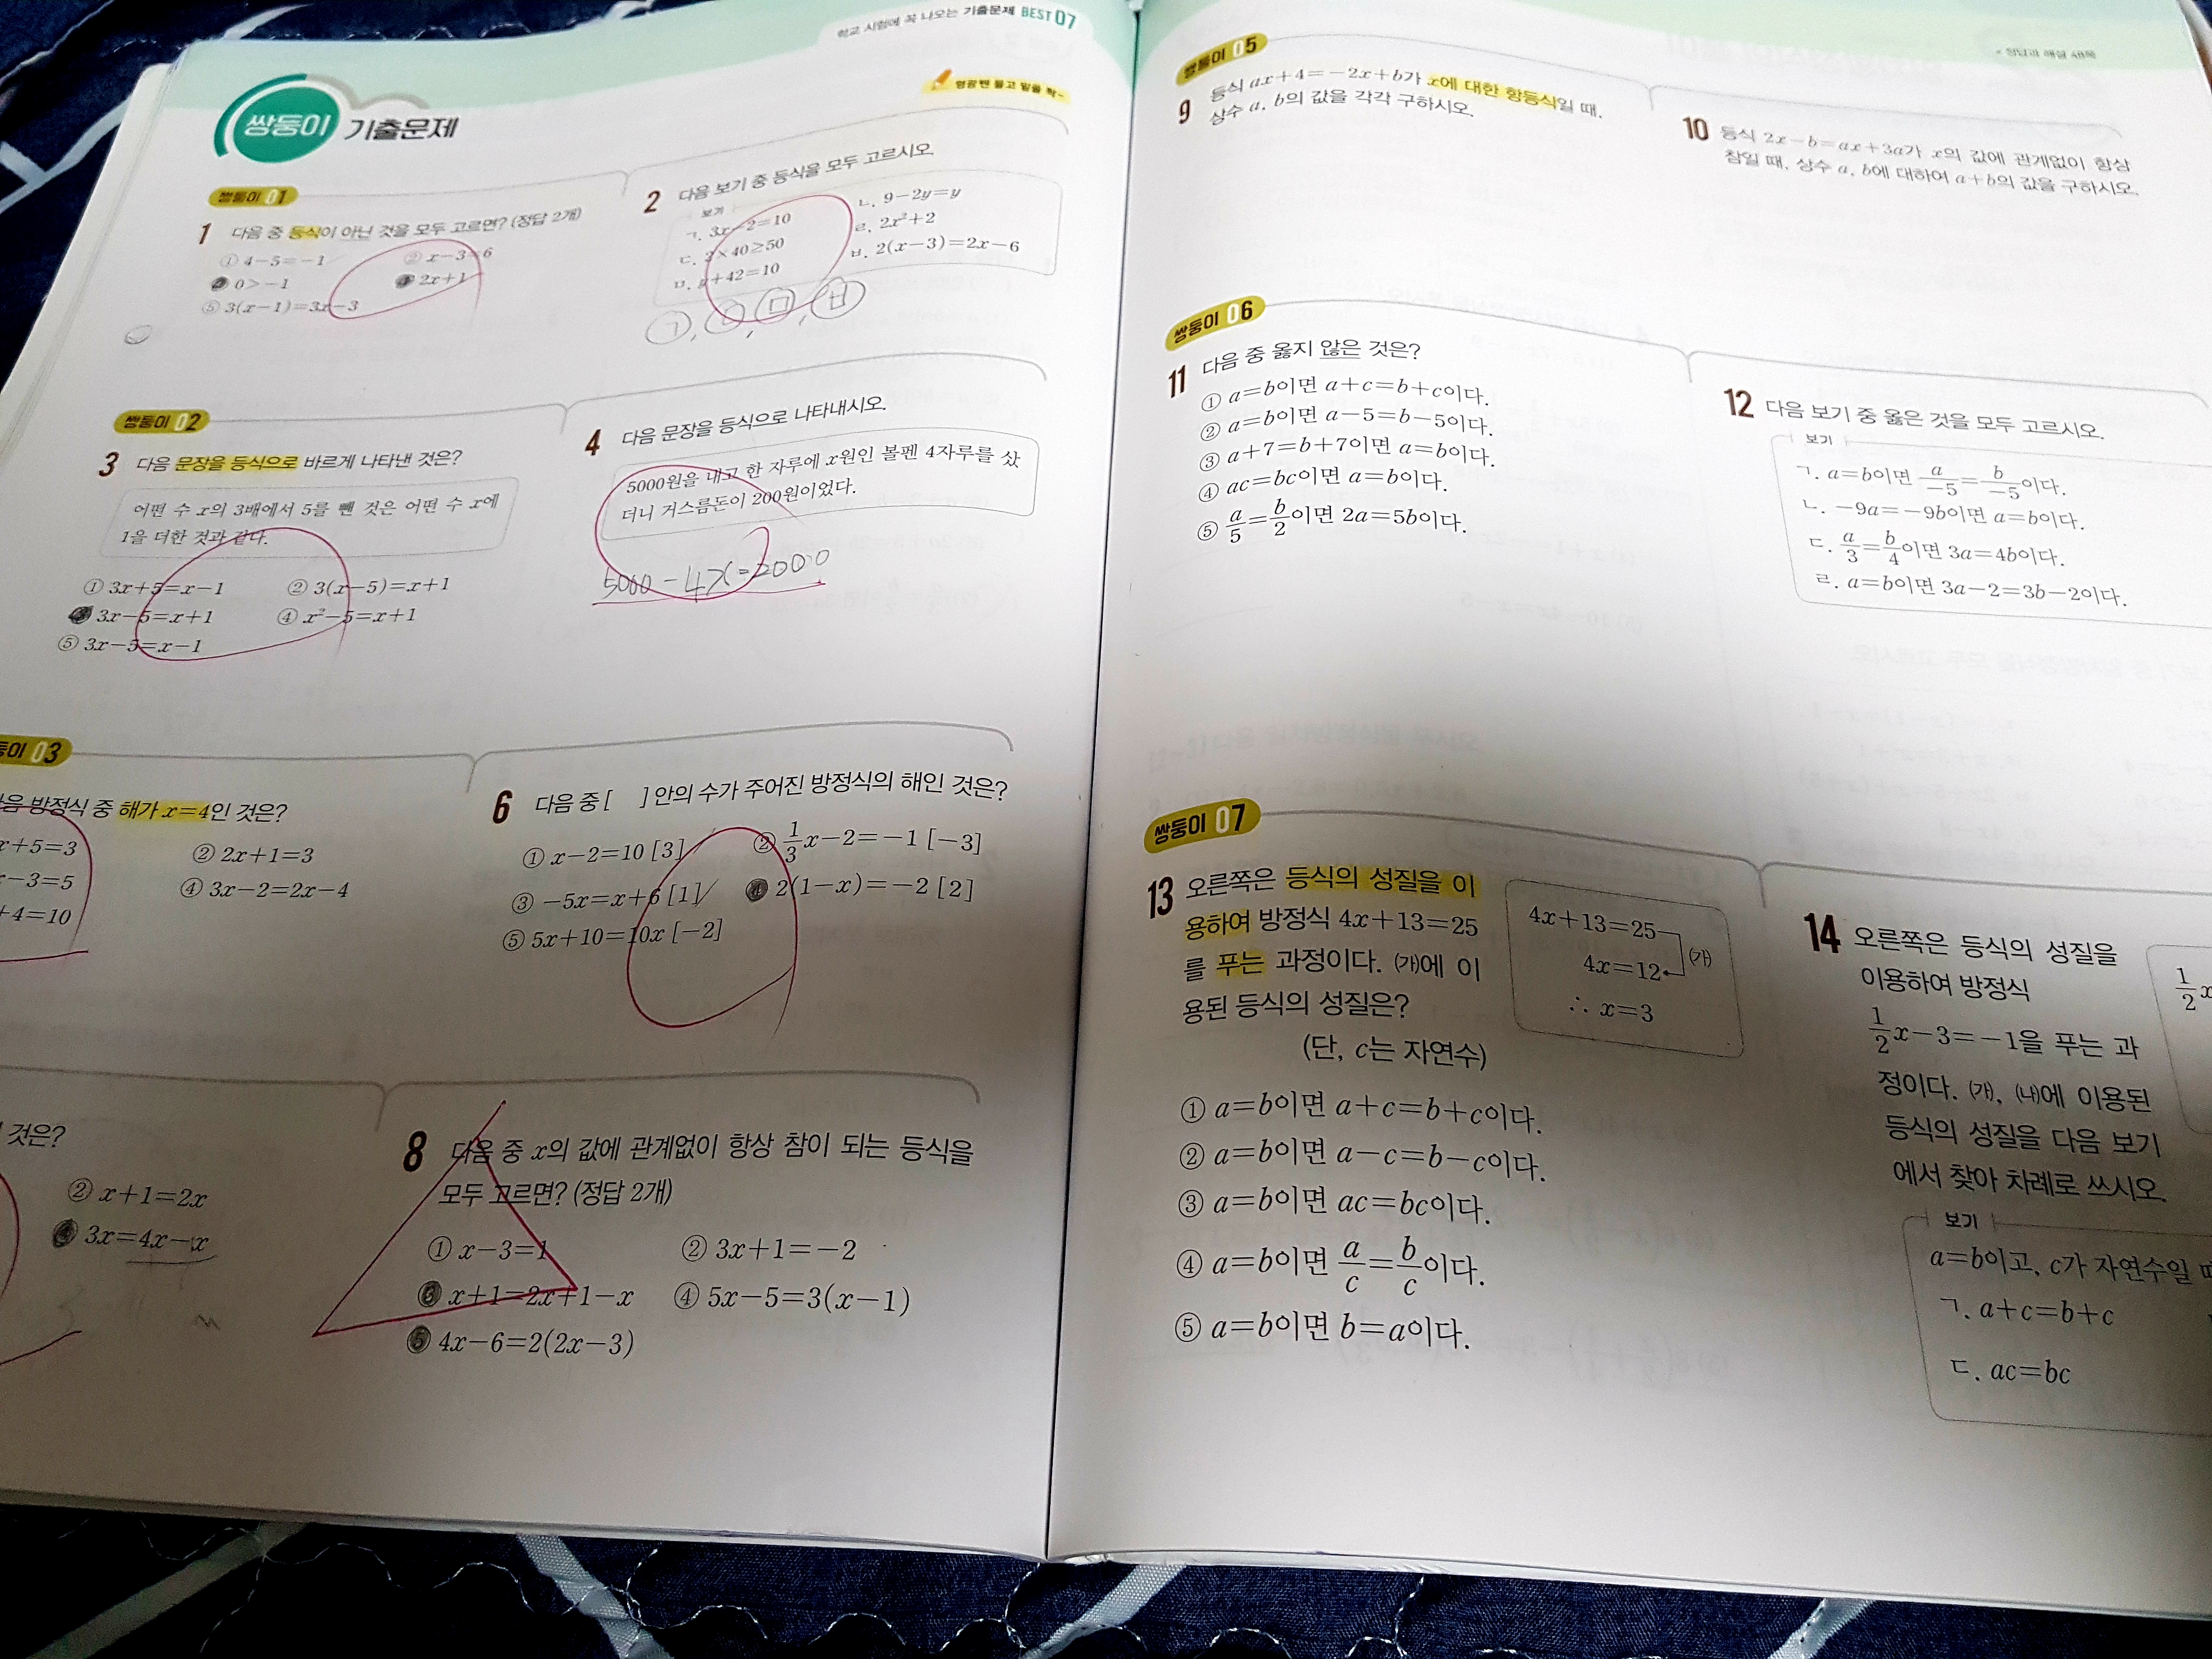 학교 시험에 꼭 나오는 기출문제 BEST 07
쌍둥이 기출문제
형광펜 들고 밑줄 쫙~
쌍둥이 01
1 다음 중 등식이 아닌 것을 모두 고르면? (정답 2개)
① 4-5=-1 ② x-3=6
0>-1 2x+1
⑤ 3(x-1)=3x-3
2 다음 보기 중 등식을 모두 고르시오.
보기
ㄱ. 3x-2=10 ㄴ. 9-2y=y
ㄷ. 3×40≥50 ㄹ. 2x²+2
ㅁ. y+42=10 ㅂ. 2(x-3)=2x-6
ㄱ, ㄴ, ㅁ, ㅂ
쌍둥이 02
3 다음 문장을 등식으로 바르게 나타낸 것은?
어떤 수 x의 3배에서 5를 뺀 것은 어떤 수 x에
1을 더한 것과 같다.
① 3x+5=x-1 ② 3(x-5)=x+1
3x-5=x+1 ④ x²-5=x+1
⑤ 3x-5=x-1
4 다음 문장을 등식으로 나타내시오.
5000원을 내고 한 자루에 x원인 볼펜 4자루를 샀
더니 거스름돈이 200원이었다.
5000-4x=200
둥이 03
음 방정식 중 해가 x=4인 것은?
x+5=3 ② 2x+1=3
-3=5 ④ 3x-2=2x-4
+4=10
6 다음 중 [ ] 안의 수가 주어진 방정식의 해인 것은?
① x-2=10 [3] ② 1/3x-2=-1 [-3]
③ -5x=x+6 [1] ④ 2(1-x)=-2 [2]
⑤ 5x+10=10x [-2]
것은?
② x+1=2x
④ 3x=4x-x
8 다음 중 x의 값에 관계없이 항상 참이 되는 등식을
모두 고르면? (정답 2개)
① x-3=1 ② 3x+1=-2
③ x+1=2x+1-x ④ 5x-5=3(x-1)
⑤ 4x-6=2(2x-3)
정답과 해설 48쪽
쌍둥이 05
9 등식 ax+4=-2x+b가 x에 대한 항등식일 때,
상수 a, b의 값을 각각 구하시오.
10 등식 2x-b=ax+3a가 x의 값에 관계없이 항상
참일 때, 상수 a, b에 대하여 a+b의 값을 구하시오.
쌍둥이 06
11 다음 중 옳지 않은 것은?
① a=b이면 a+c=b+c이다.
② a=b이면 a-5=b-5이다.
③ a+7=b+7이면 a=b이다.
④ ac=bc이면 a=b이다.
⑤ a/5=b/2이면 2a=5b이다.
12 다음 보기 중 옳은 것을 모두 고르시오.
보기
ㄱ. a=b이면 a/-5=b/-5이다.
ㄴ. -9a=-9b이면 a=b이다.
ㄷ. a/3=b/4이면 3a=4b이다.
ㄹ. a=b이면 3a-2=3b-2이다.
쌍둥이 07
13 오른쪽은 등식의 성질을 이
용하여 방정식 4x+13=25
를 푸는 과정이다. ㈎에 이
용된 등식의 성질은?
(단, c는 자연수)
4x+13=25
4x=12 ㈎
∴ x=3
① a=b이면 a+c=b+c이다.
② a=b이면 a-c=b-c이다.
③ a=b이면 ac=bc이다.
④ a=b이면 a/c=b/c이다.
⑤ a=b이면 b=a이다.
14 오른쪽은 등식의 성질을
이용하여 방정식
1/2x-3=-1을 푸는 과
정이다. ㈎, ㈏에 이용된
등식의 성질을 다음 보기
에서 찾아 차례로 쓰시오.
1/2x
보기
a=b이고, c가 자연수일
ㄱ. a+c=b+c
ㄷ. ac=bc